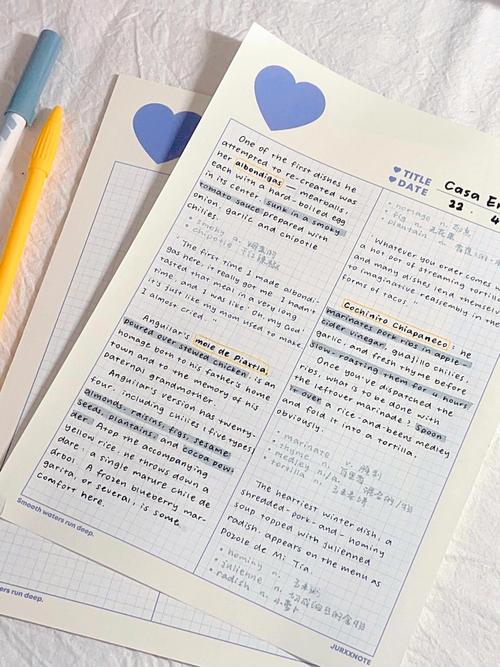 One of the first dishes he
attempted to re-created was
her albondigas - meatballs,
each with a hard-boiled egg
in its center, sunk in a smoky
tomato sauce prepared with
onion, garlic and chipotle
chilies.
• smoky a.
• chipotle n.
The first time I made albondi-
gas here, it really got me. I hadn't
tasted that meal in a very long
time, and I was like: 'Oh, my God'
it's just like my mom used to make.
I almost cried."
Anguilar's mole de Piaxtla,
poured over stewed chicken, is an
homage both to his father's home
town and to the memory of his
paternal grandmother.
Anguilar's version has twenty-
four, including chilies (five types),
almonds, raisins, figs, sesame
seeds, plantains, and cocoa pow-
der. Atop the accompanying
yellow rice, he throws down a
dare: a single mature chile de
árbol. A frozen blueberry mar-
garita, or several, is some
comfort here.
Smooth waters run deep.
TITLE
DATE
Casa En
22 . 4
• homage n.
• fig n. 无花果
• plantain n.
"Whatever you order comes
a hot pot of streaming tortil
and many dishes lend themselve
to imaginative reassembly in th
forms of tacos."
Cochinito Chiapaneco: he
marinates pork ribs in apple-
cider vinegar, guajillo chilies,
garlic, and fresh thyme before
slow-roasting them for 4 hours
Once you've dispatched the
ribs, what is to be done with
the leftover marinade? Spoon
it over a rice-and-beans medley
and fold it into a tortilla,
obviously.
• marinate v.
• thyme n.
• medley n./a.
• tortilla n.
The heartiest winter dish, a
shredded-pork-and-hominy
soup topped with julienned
radish, appears on the menu as
Pozole de Mi Tía.
• hominy n.
• julienne n.
• radish n. 小萝卜
JURXXNOTE
ers run deep.